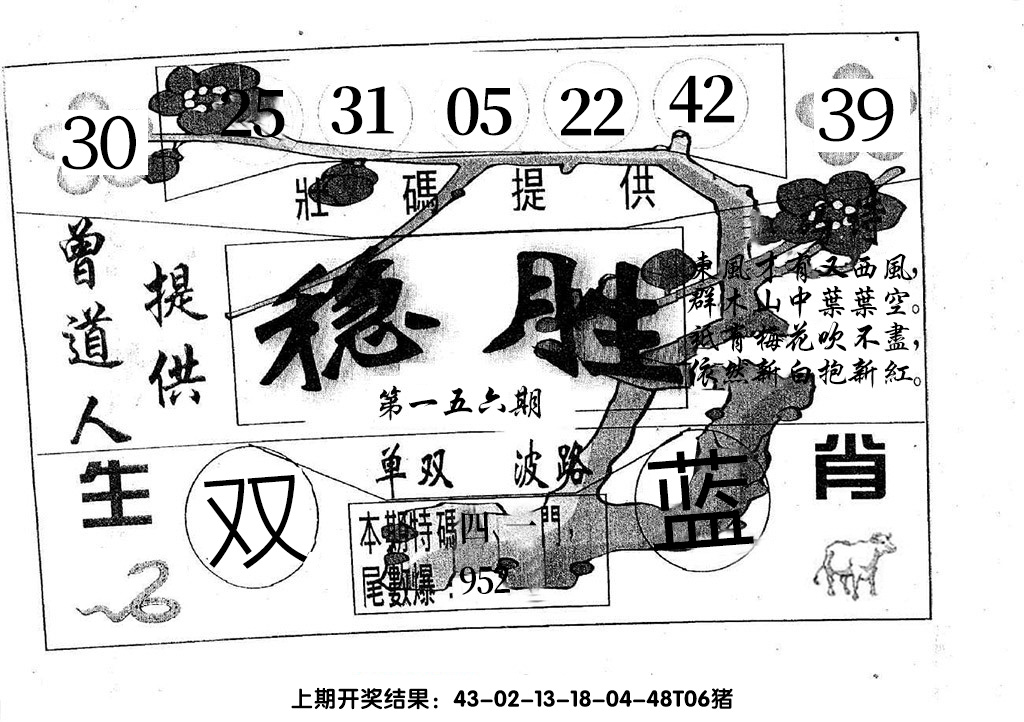 30 25 31 05 22 42 39
壯碼提供
曾道人
提供
稳胜
第一五六期
東風才有又西風，
群木山中葉葉空。
祗有梅花吹不盡，
依然新白抱新紅。
生肖
单双 波路
双
蓝
本期特碼四、一門，
尾數爆：952
上期开奖结果：43-02-13-18-04-48T06猪